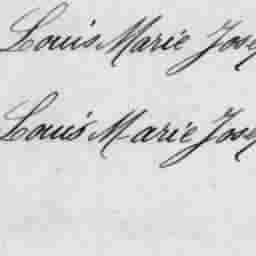 Louis Marie Jose
Louis Marie Jose